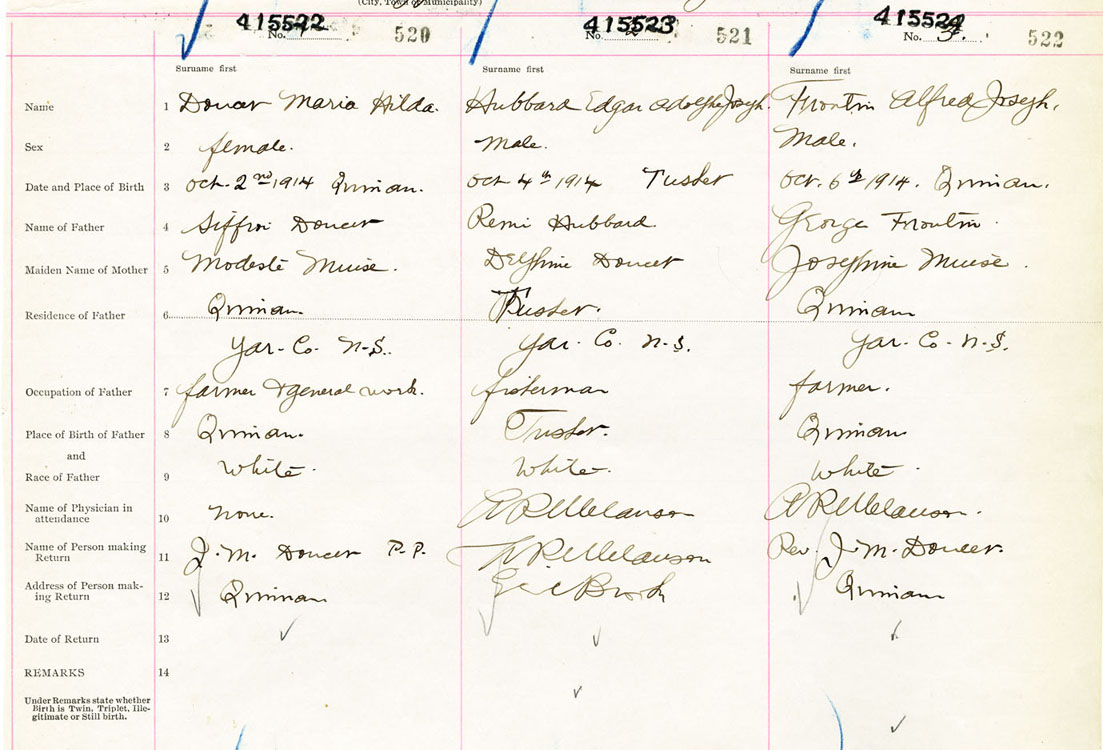 (City, Town or Municipality)
415522 415523 415524
No. 1 520 No. 2 521 No. 3. 522
Surname first Surname first Surname first
Name 1 Doucet Maria Hilda. Hubbard Edgar Adolphe Joseph. Frontin Alfred Joseph.
Sex 2 female. Male. Male.
Date and Place of Birth 3 Oct. 2nd 1914 Quinan. Oct 4th 1914 Tusket Oct. 6th 1914. Quinan.
Name of Father 4 Siffroi Doucet Remi Hubbard George Frontin
Maiden Name of Mother 5 Modeste Muise. Delphine Doucet Josephine Muise.
Residence of Father 6 Quinan. Tusket. Quinan
Yar. Co. N.S. Yar. Co. N.S. Yar. Co. N.S.
Occupation of Father 7 farmer & general work. fisherman farmer.
Place of Birth of Father 8 Quinan. Tusket. Quinan
and
Race of Father 9 White. White. White.
Name of Physician in
attendance 10 None. A R Melanson A R Melanson.
Name of Person making
Return 11 J. M. Doucet P.P. A R Melanson Rev. J. M. Doucet.
Address of Person mak-
ing Return 12 Quinan Eel Brook Quinan
Date of Return 13
REMARKS 14
Under Remarks state whether
Birth is Twin, Triplet, Ille-
gitimate or Still birth.